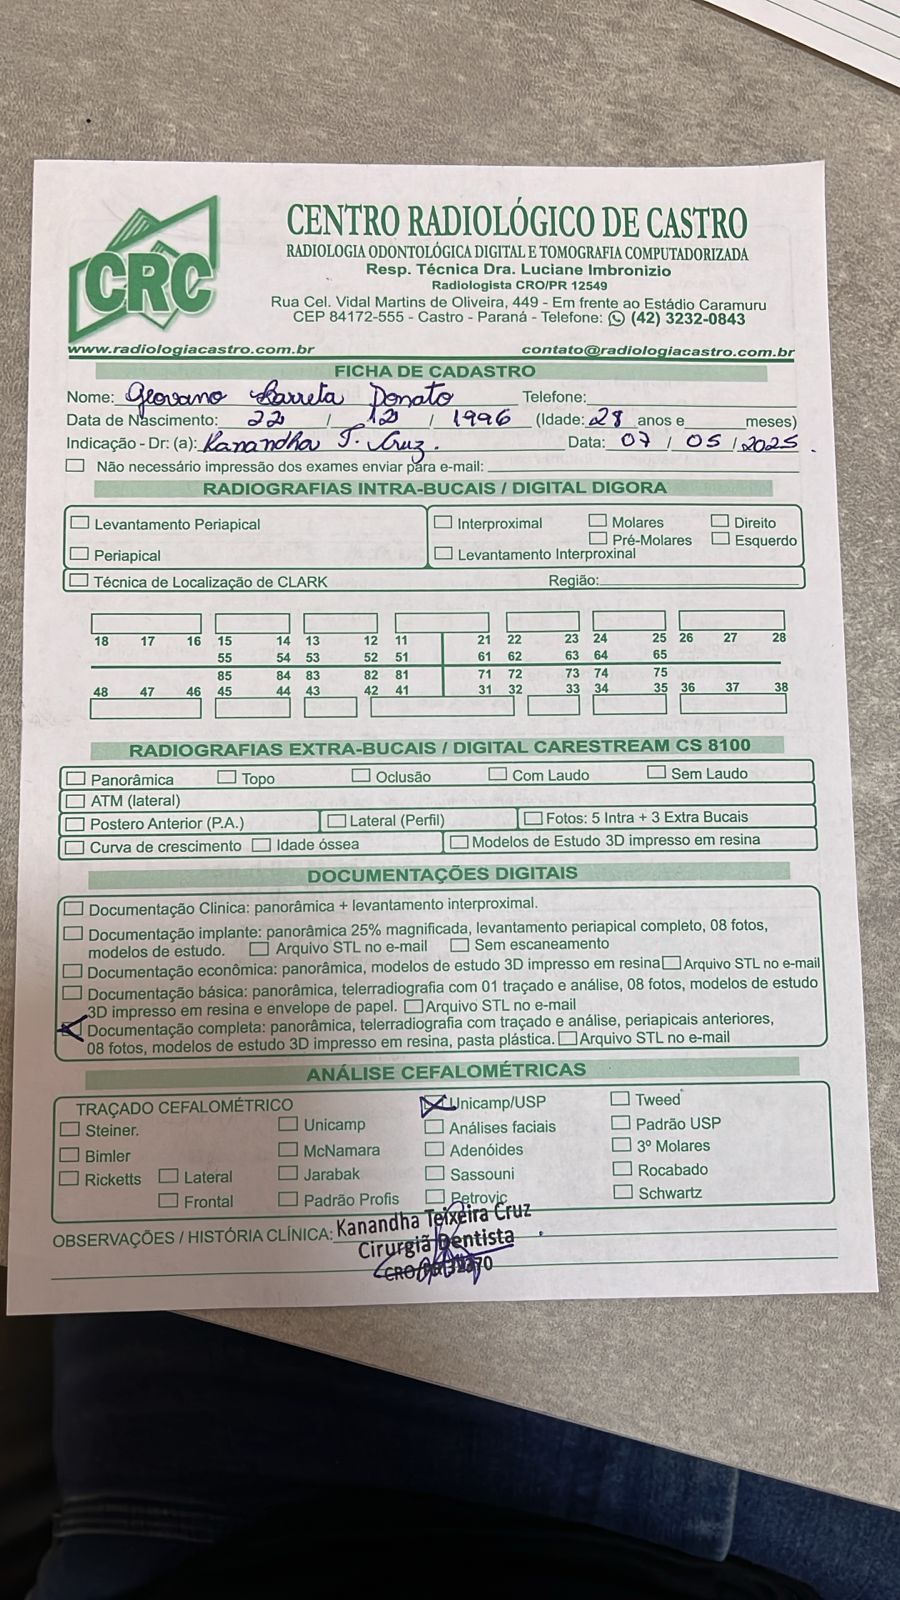 CRC
CENTRO RADIOLÓGICO DE CASTRO
RADIOLOGIA ODONTOLÓGICA DIGITAL E TOMOGRAFIA COMPUTADORIZADA
Resp. Técnica Dra. Luciane Imbronizio
Radiologista CRO/PR 12549
Rua Cel. Vidal Martins de Oliveira, 449 - Em frente ao Estádio Caramuru
CEP 84172-555 - Castro - Paraná - Telefone: (42) 3232-0843
www.radiologiacastro.com.br contato@radiologiacastro.com.br
FICHA DE CADASTRO
Nome: Geovano Barreta Donato Telefone:
Data de Nascimento: 22 / 12 / 1996 (Idade: 28 anos e meses)
Indicação - Dr: (a): Kanandha T. Cruz. Data: 07 / 05 / 2025.
Não necessário impressão dos exames enviar para e-mail:
RADIOGRAFIAS INTRA-BUCAIS / DIGITAL DIGORA
Levantamento Periapical Interproximal Molares Direito
Pré-Molares Esquerdo
Periapical Levantamento Interproxinal
Técnica de Localização de CLARK Região:
18 17 16 15 14 13 12 11 21 22 23 24 25 26 27 28
55 54 53 52 51 61 62 63 64 65
85 84 83 82 81 71 72 73 74 75
48 47 46 45 44 43 42 41 31 32 33 34 35 36 37 38
RADIOGRAFIAS EXTRA-BUCAIS / DIGITAL CARESTREAM CS 8100
Panorâmica Topo Oclusão Com Laudo Sem Laudo
ATM (lateral)
Postero Anterior (P.A.) Lateral (Perfil) Fotos: 5 Intra + 3 Extra Bucais
Curva de crescimento Idade óssea Modelos de Estudo 3D impresso em resina
DOCUMENTAÇÕES DIGITAIS
Documentação Clinica: panorâmica + levantamento interproximal.
Documentação implante: panorâmica 25% magnificada, levantamento periapical completo, 08 fotos,
modelos de estudo. Arquivo STL no e-mail Sem escaneamento
Documentação econômica: panorâmica, modelos de estudo 3D impresso em resina Arquivo STL no e-mail
Documentação básica: panorâmica, telerradiografia com 01 traçado e análise, 08 fotos, modelos de estudo
3D impresso em resina e envelope de papel. Arquivo STL no e-mail
Documentação completa: panorâmica, telerradiografia com traçado e análise, periapicais anteriores,
08 fotos, modelos de estudo 3D impresso em resina, pasta plástica. Arquivo STL no e-mail
ANÁLISE CEFALOMÉTRICAS
TRAÇADO CEFALOMÉTRICO Unicamp/USP Tweed
Steiner. Unicamp Análises faciais Padrão USP
Bimler McNamara Adenóides 3º Molares
Ricketts Lateral Jarabak Sassouni Rocabado
Frontal Padrão Profis Petrovic Schwartz
OBSERVAÇÕES / HISTÓRIA CLÍNICA: Kanandha Teixeira Cruz
Cirurgiã Dentista